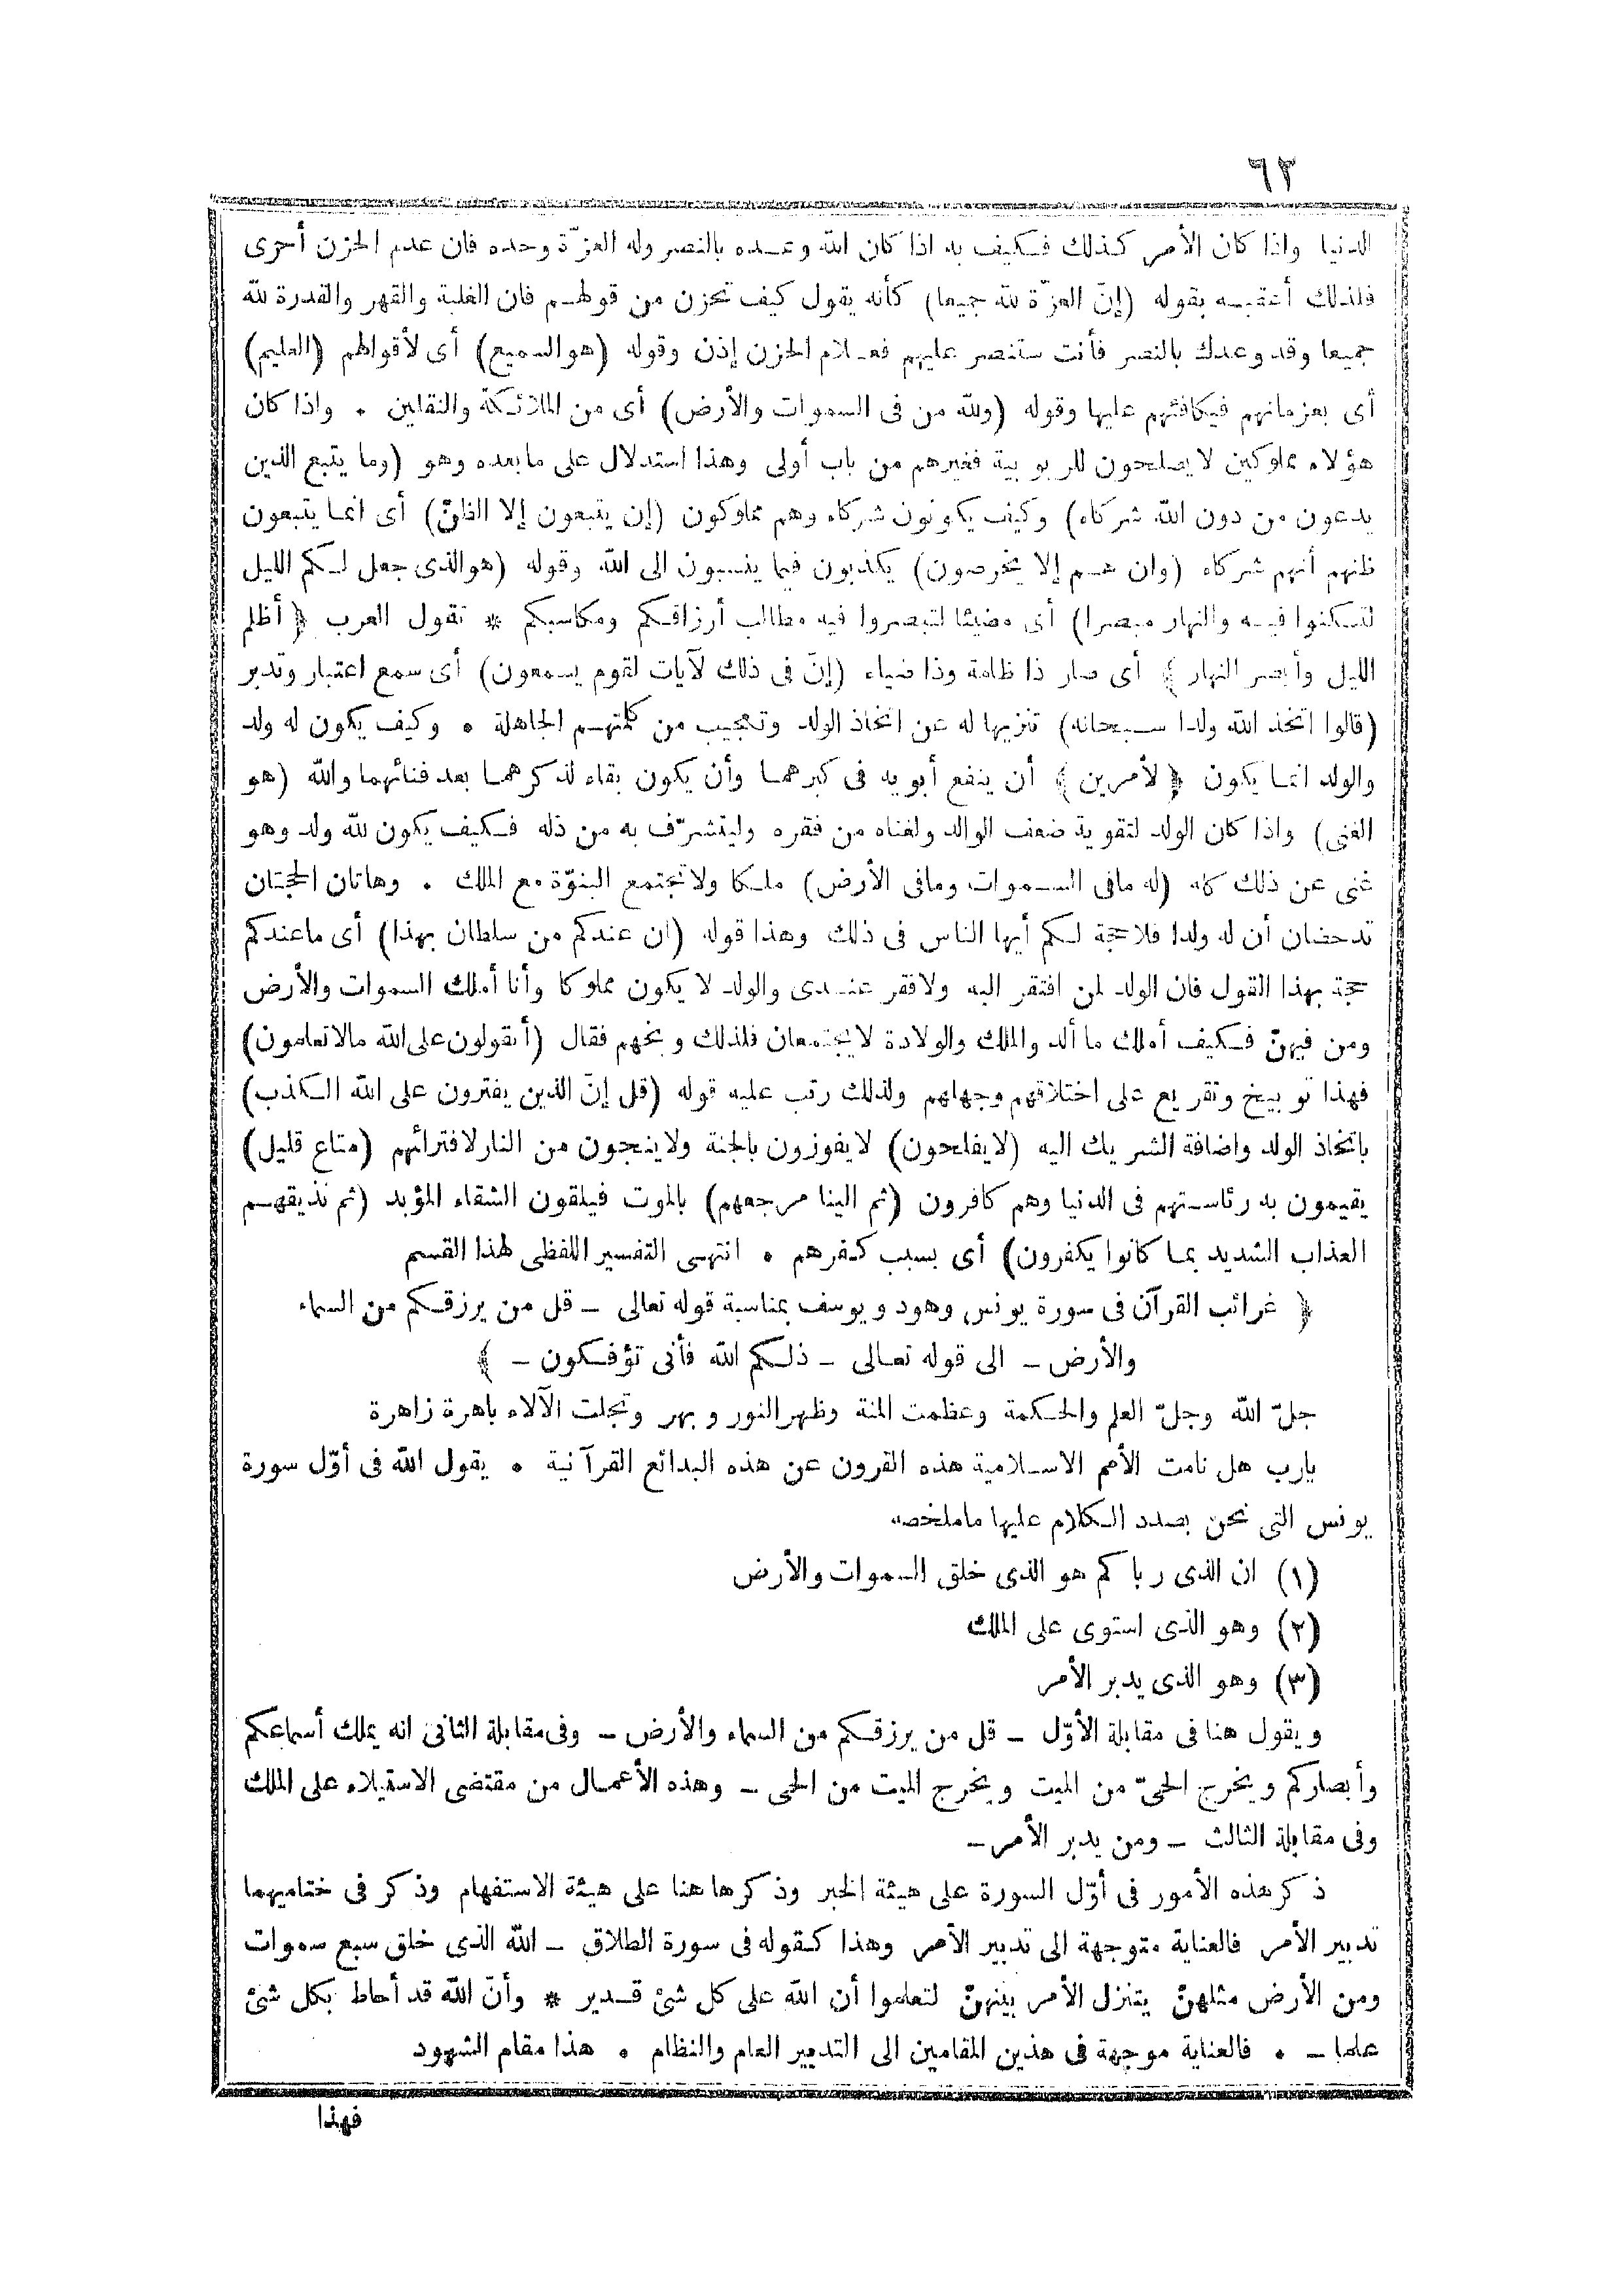 ٦٢
الدنيا واذا كان الأمر كذلك فكيف به اذا كان الله وعده بالنصر وله العزّة وحده فان عدم الحزن أحرى
فلذلك أعقبه بقوله (إنّ العزّة لله جميعا) كأنه يقول كيف تحزن من قولهم فان الغلبة والقهر والقدرة لله
جميعا وقد وعدك بالنصر فأنت ستنصر عليهم فعلام الحزن إذن وقوله (هو السميع) أى لأقوالهم (العليم)
أى بعزماتهم فيكافئهم عليها وقوله (ولله من فى السموات والأرض) أى من الملائكة والثقلين . واذا كان
هؤلاء مملوكين لا يصلحون للربوبية فغيرهم من باب أولى وهذا استدلال على مابعده وهو (وما يتبع الذين
يدعون من دون الله شركاء) وكيف يكونون شركاء وهم مملوكون (إن يتبعون إلا الظنّ) أى انما يتبعون
ظنهم أنهم شركاء (وان هم إلا يخرصون) يكذبون فيما ينسبون الى الله وقوله (هو الذى جعل لكم الليل
لتسكنوا فيه والنهار مبصرا) أى مضيئا لتبصروا فيه مطالب أرزاقكم ومكاسبكم * تقول العرب ﴿ أظلم
الليل وأبصر النهار ﴾ أى صار ذا ظلمة وذا ضياء (إنّ فى ذلك لآيات لقوم يسمعون) أى سمع اعتبار وتدبر
(قالوا اتخذ الله ولدا سبحانه) تنزيها له عن اتخاذ الولد وتعجيب من كلمتهم الجاهلة . وكيف يكون له ولد
والولد انما يكون ﴿ لأمرين ﴾ أن ينفع أبويه فى كبرهما وأن يكون بقاء لذكرهما بعد فنائهما والله (هو
الغنى) واذا كان الولد لتقوية ضعف الوالد ولغناه من فقره وليتشرّف به من ذله فكيف يكون لله ولد وهو
غنى عن ذلك كله (له مافى السموات ومافى الأرض) ملكا ولا تجتمع البنوّة مع الملك . وهاتان الحجتان
تدحضان أن له ولدا فلا حجة لكم أيها الناس فى ذلك وهذا قوله (ان عندكم من سلطان بهذا) أى ماعندكم
حجة بهذا القول فان الولد لمن افتقر اليه ولا فقر عندى والولد لا يكون مملوكا وأنا أملك السموات والأرض
ومن فيهنّ فكيف أملك ما ألد والملك والولادة لا يجتمعان فلذلك وبخهم فقال (أتقولون على الله مالا تعلمون)
فهذا توبيخ وتقريع على اختلاقهم وجهلهم ولذلك رتب عليه قوله (قل إنّ الذين يفترون على الله الكذب)
باتخاذ الولد واضافة الشريك اليه (لايفلحون) لايفوزون بالجنة ولا ينجون من النار لافترائهم (متاع قليل)
يقيمون به رئاستهم فى الدنيا وهم كافرون (ثم الينا مرجعهم) بالموت فيلقون الشقاء المؤبد (ثم نذيقهم
العذاب الشديد بما كانوا يكفرون) أى بسبب كفرهم . انتهى التفسير اللفظى لهذا القسم
﴿ غرائب القرآن فى سورة يونس وهود ويوسف بمناسبة قوله تعالى ـ قل من يرزقكم من السماء
والأرض ـ الى قوله تعالى ـ ذلكم الله فأنى تؤفكون ـ ﴾
جلّ الله وجلّ العلم والحكمة وعظمت المنة وظهر النور وبهر وتجلت الآلاء باهرة زاهرة
يارب هل نامت الأمم الاسلامية هذه القرون عن هذه البدائع القرآنية . يقول الله فى أوّل سورة
يونس التى نحن بصدد الكلام عليها ماملخصه
(١) ان الذى رباكم هو الذى خلق السموات والأرض
(٢) وهو الذى استوى على الملك
(٣) وهو الذى يدبر الأمر
ويقول هنا فى مقابلة الأوّل ـ قل من يرزقكم من السماء والأرض ـ وفى مقابلة الثانى انه يملك أسماعكم
وأبصاركم ويخرج الحىّ من الميت ويخرج الميت من الحى ـ وهذه الأعمال من مقتضى الاستيلاء على الملك
وفى مقابلة الثالث ـ ومن يدبر الأمر ـ
ذكر هذه الأمور فى أوّل السورة على هيئة الخبر وذكرها هنا على هيئة الاستفهام وذكر فى ختاميهما
تدبير الأمر فالعناية متوجهة الى تدبير الأمر وهذا كقوله فى سورة الطلاق ـ الله الذى خلق سبع سموات
ومن الأرض مثلهنّ يتنزل الأمر بينهنّ لتعلموا أن الله على كل شئ قدير * وأنّ الله قد أحاط بكل شئ
علما ـ . فالعناية موجهة فى هذين المقامين الى التدبير العام والنظام . هذا مقام الشهود
فهذا